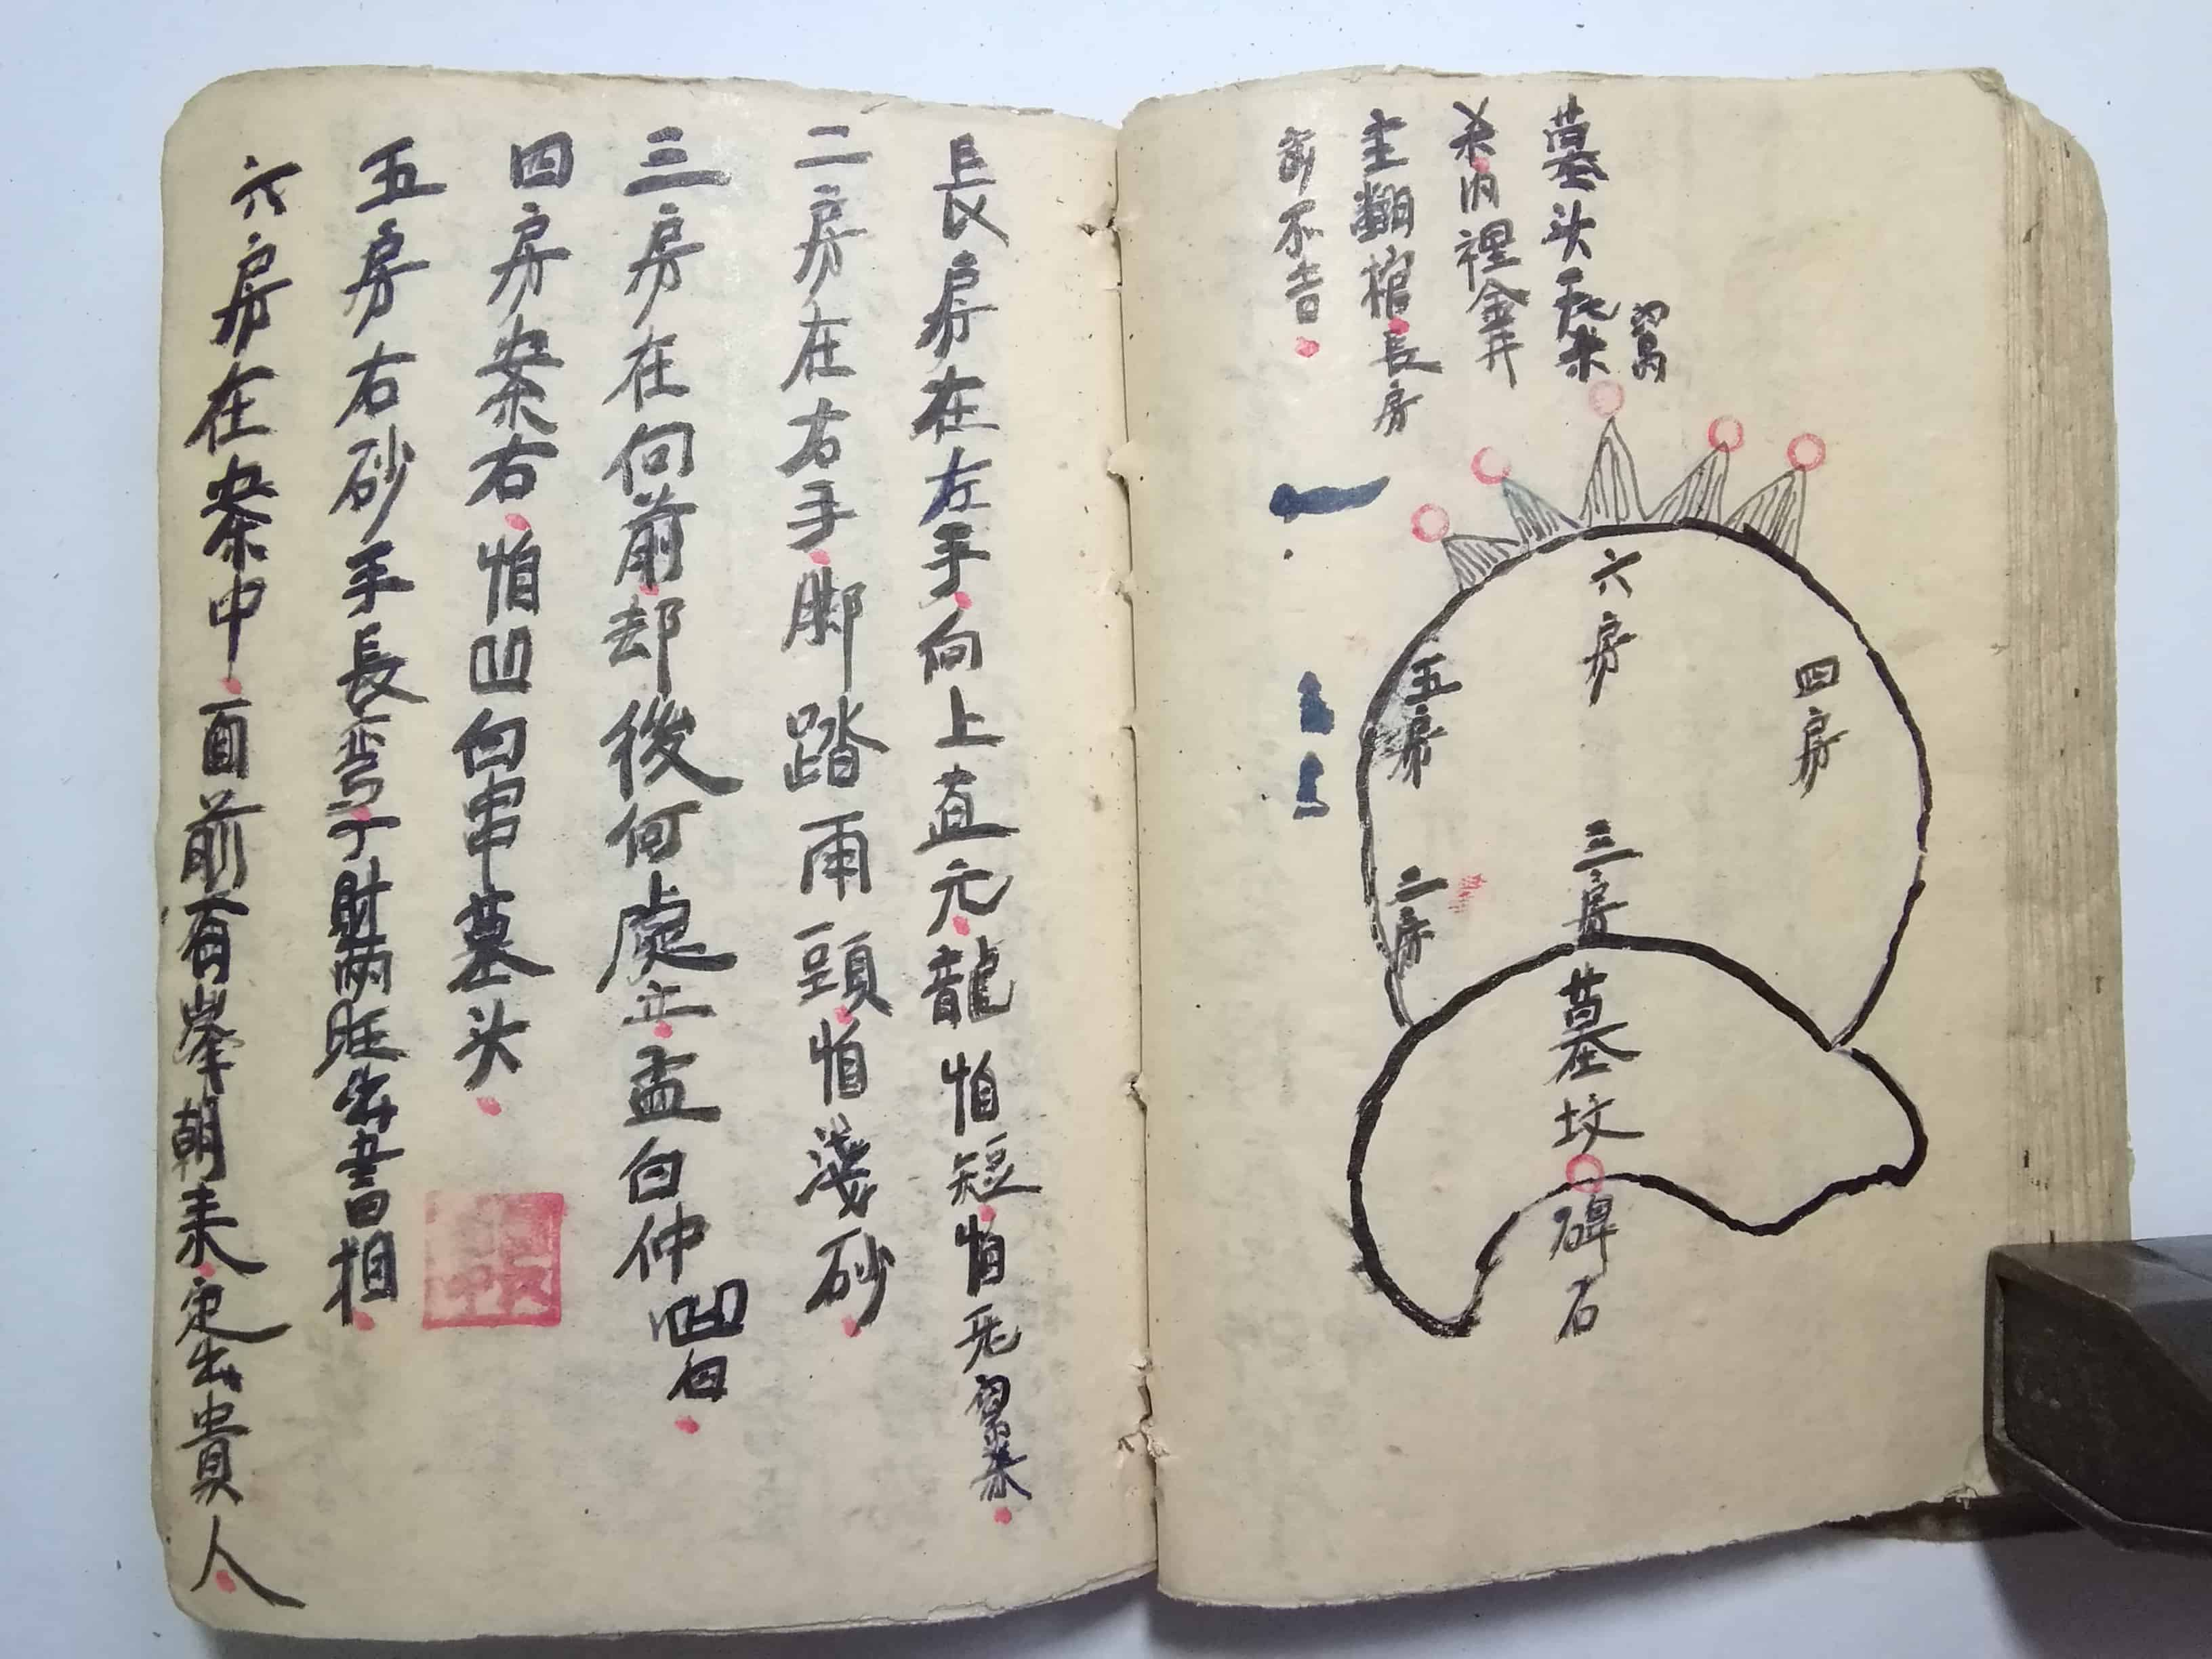 墓头无来
杀内裡金井
主翻棺長房
前不吉
六房
四房
五房
三房
二房
墓坟
碑石
長房在左手向上直元龍怕短怕无
二房在右手脚踏両頭怕淺砂
三房在向前却後何處止孟白仲凹白
四房案右怕凹白串墓头
五房右砂手長弯丁財両旺出書相
六房在案中面前有峯朝来定出貴人